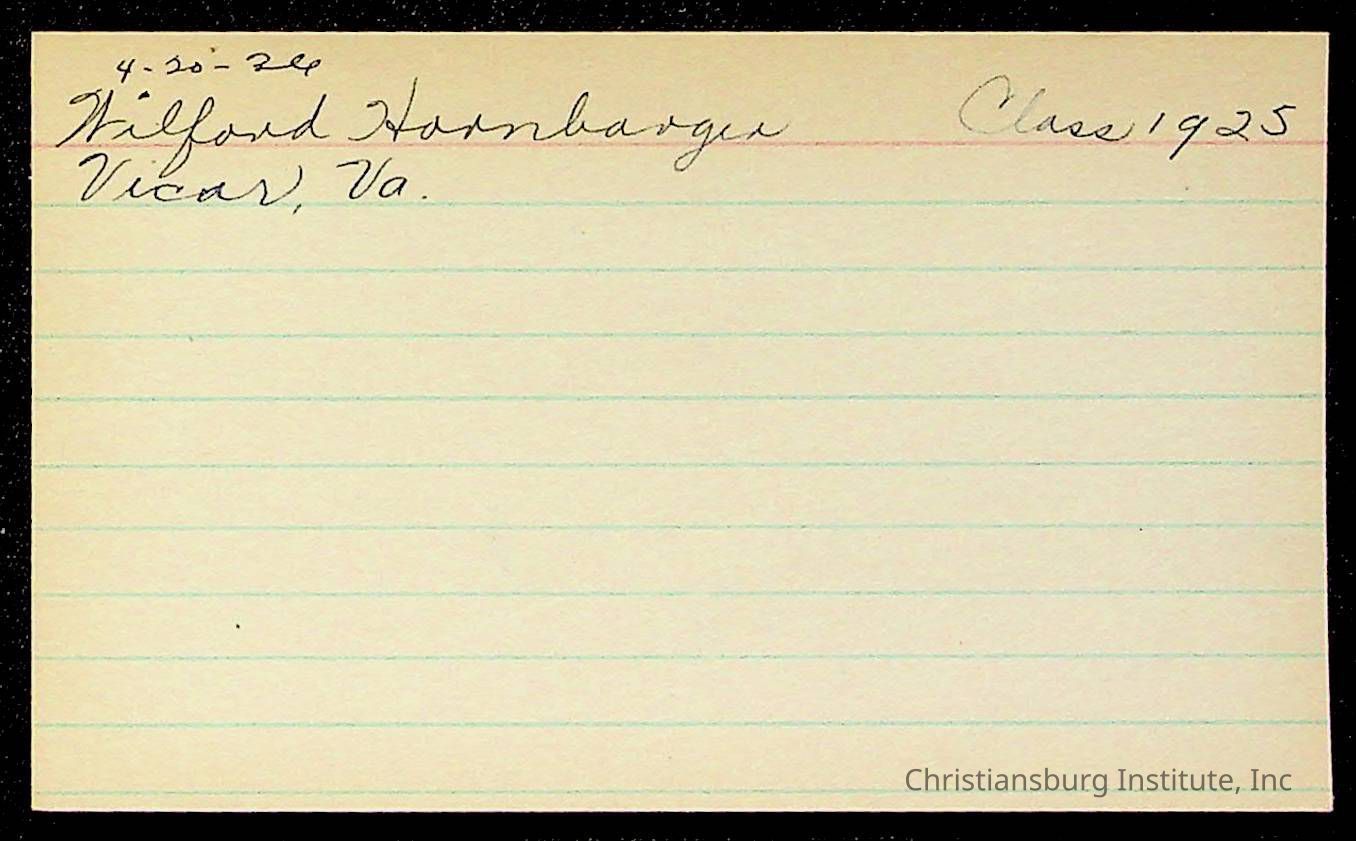 4-20-26
Wilford Hornbarger Class 1925
Vicar, Va.
Christiansburg Institute, Inc